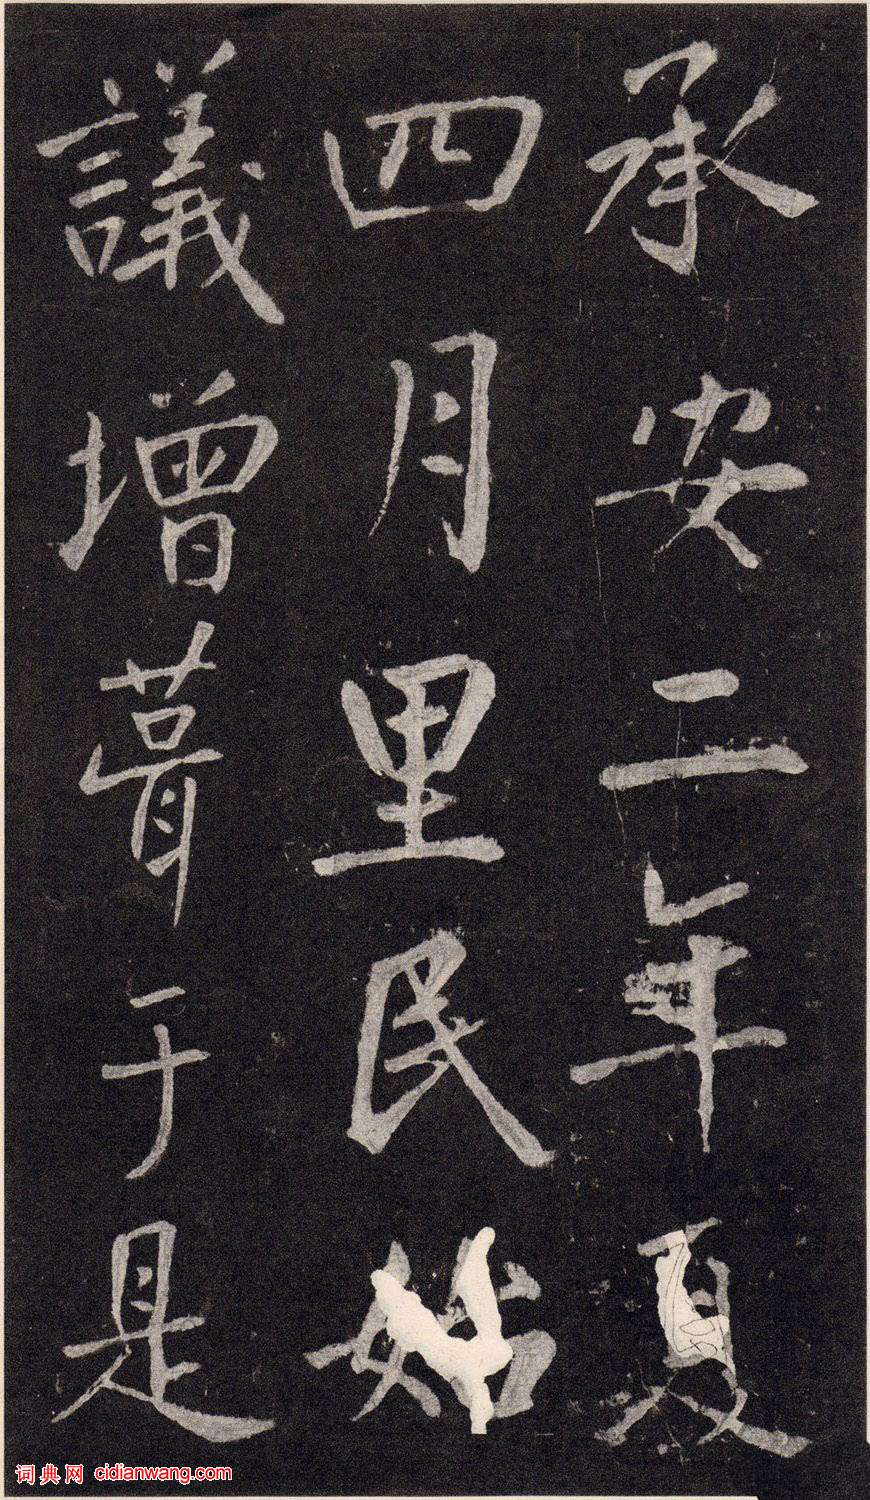 承安二年夏
四月里民始
議增葺于是
词典网 cidianwang.com